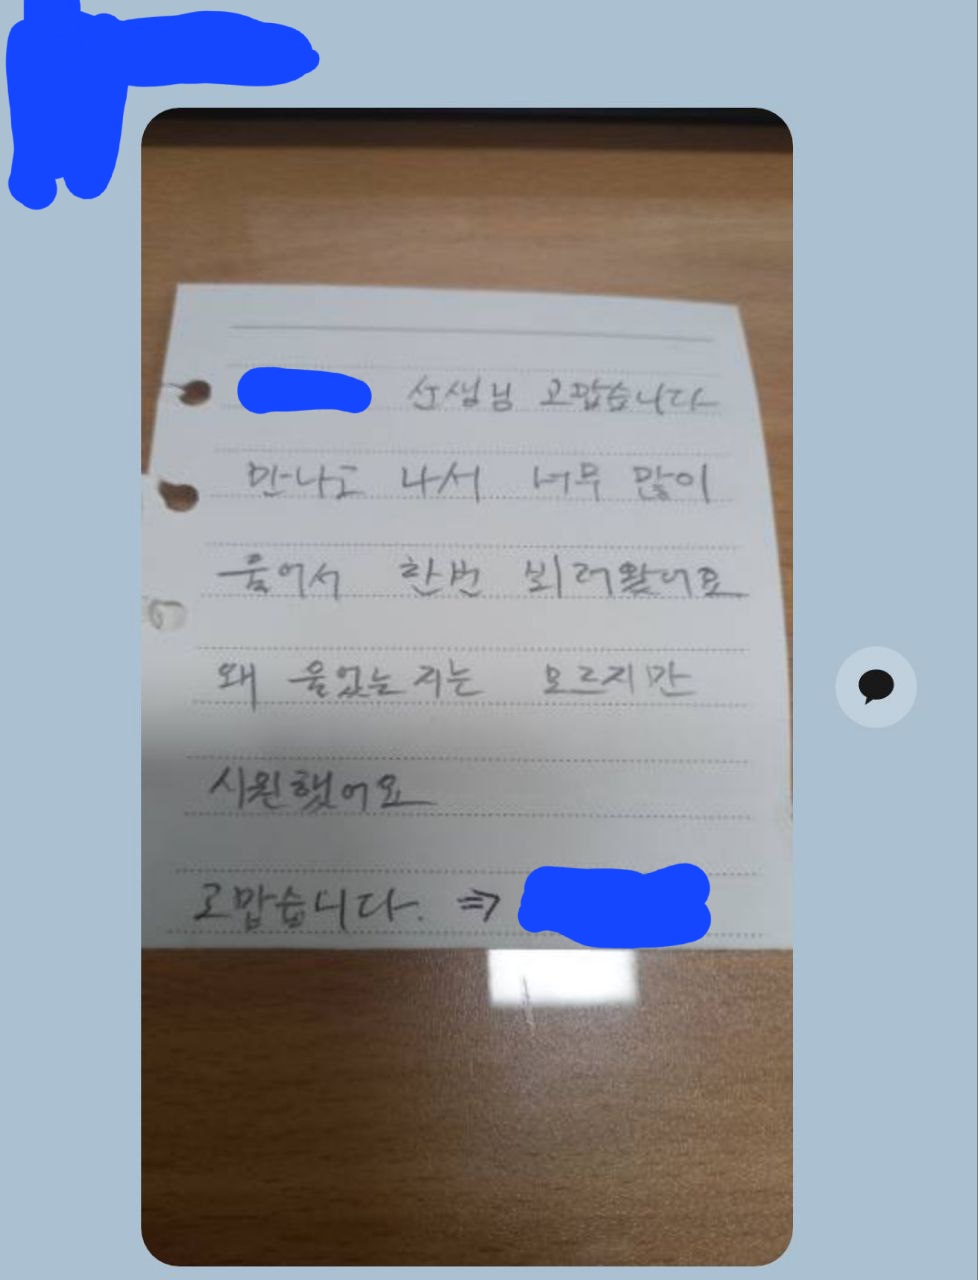 선생님 고맙습니다
만나고 나서 너무 많이
울어서 한번 뵈러왔어요
왜 울었는지는 모르지만
시원했어요
고맙습니다. ⇒